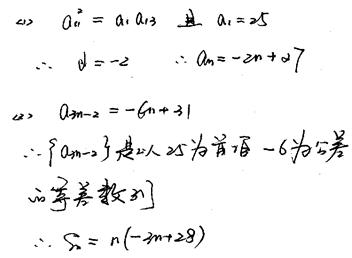 (1) a₁₁² = a₁a₁₃ 且 a₁=25
∴ d=-2 ∴ an=-2n+27
(2) a3n-2=-6n+31
∴{a3n-2}是以25为首项 -6为公差
的等差数列
∴ Sn = n(-3n+28)